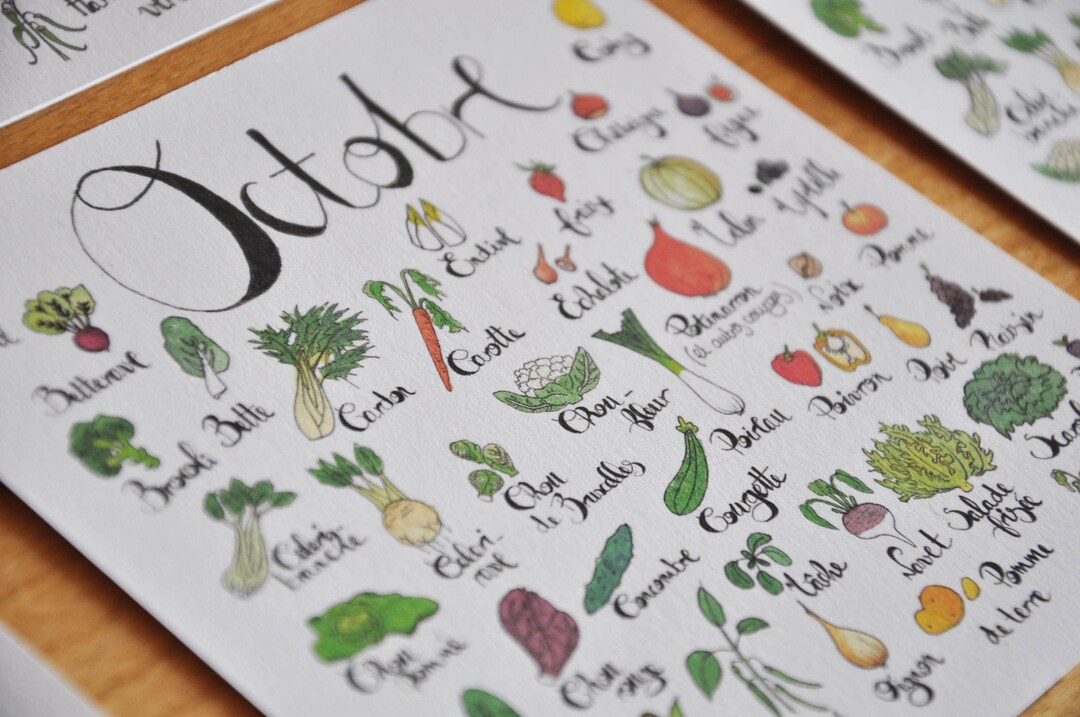 Octobre
Coing
Châtaigne
figue
Endive
fraise
Melon
Myrtille
Echalote
Potimarron
(et autres courges)
Noix
Pomme
Betterave
Bette
Cardon
Carotte
Chou-
fleur
Poireau
Poivron
Poire
Raisin
Brocoli
Céleri-
branche
Céleri-
rave
Chou
de Bruxelles
Courgette
Navet
Salade
frisée
Chou
pommé
Chou
rouge
Concombre
Mâche
Oignon
Pomme
de terre